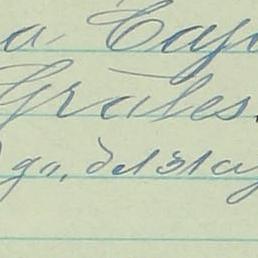 a Caj
Grales.
go, del 31 ag